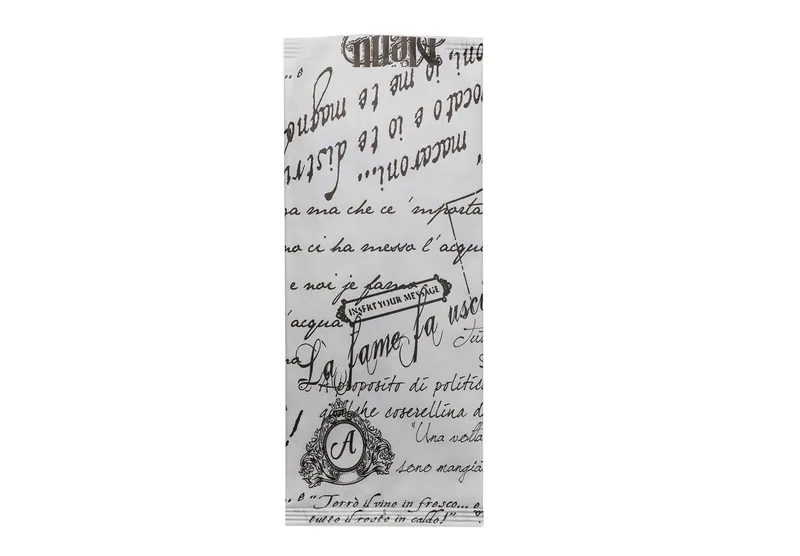 Menu
...e
macaroni..."
ocato e io te distr
oni, io me te magno
a ma che ce 'mporta
no ci ha messo l'acqu
e noi je famo
INSERT YOUR MESSAGE
'acqua
La fame fa usci
A proposito di politic
qualche coserellina d
"Una volta
A
sono mangia
..e "Terrò il vino in fresco... e
tutto il resto in caldo!"